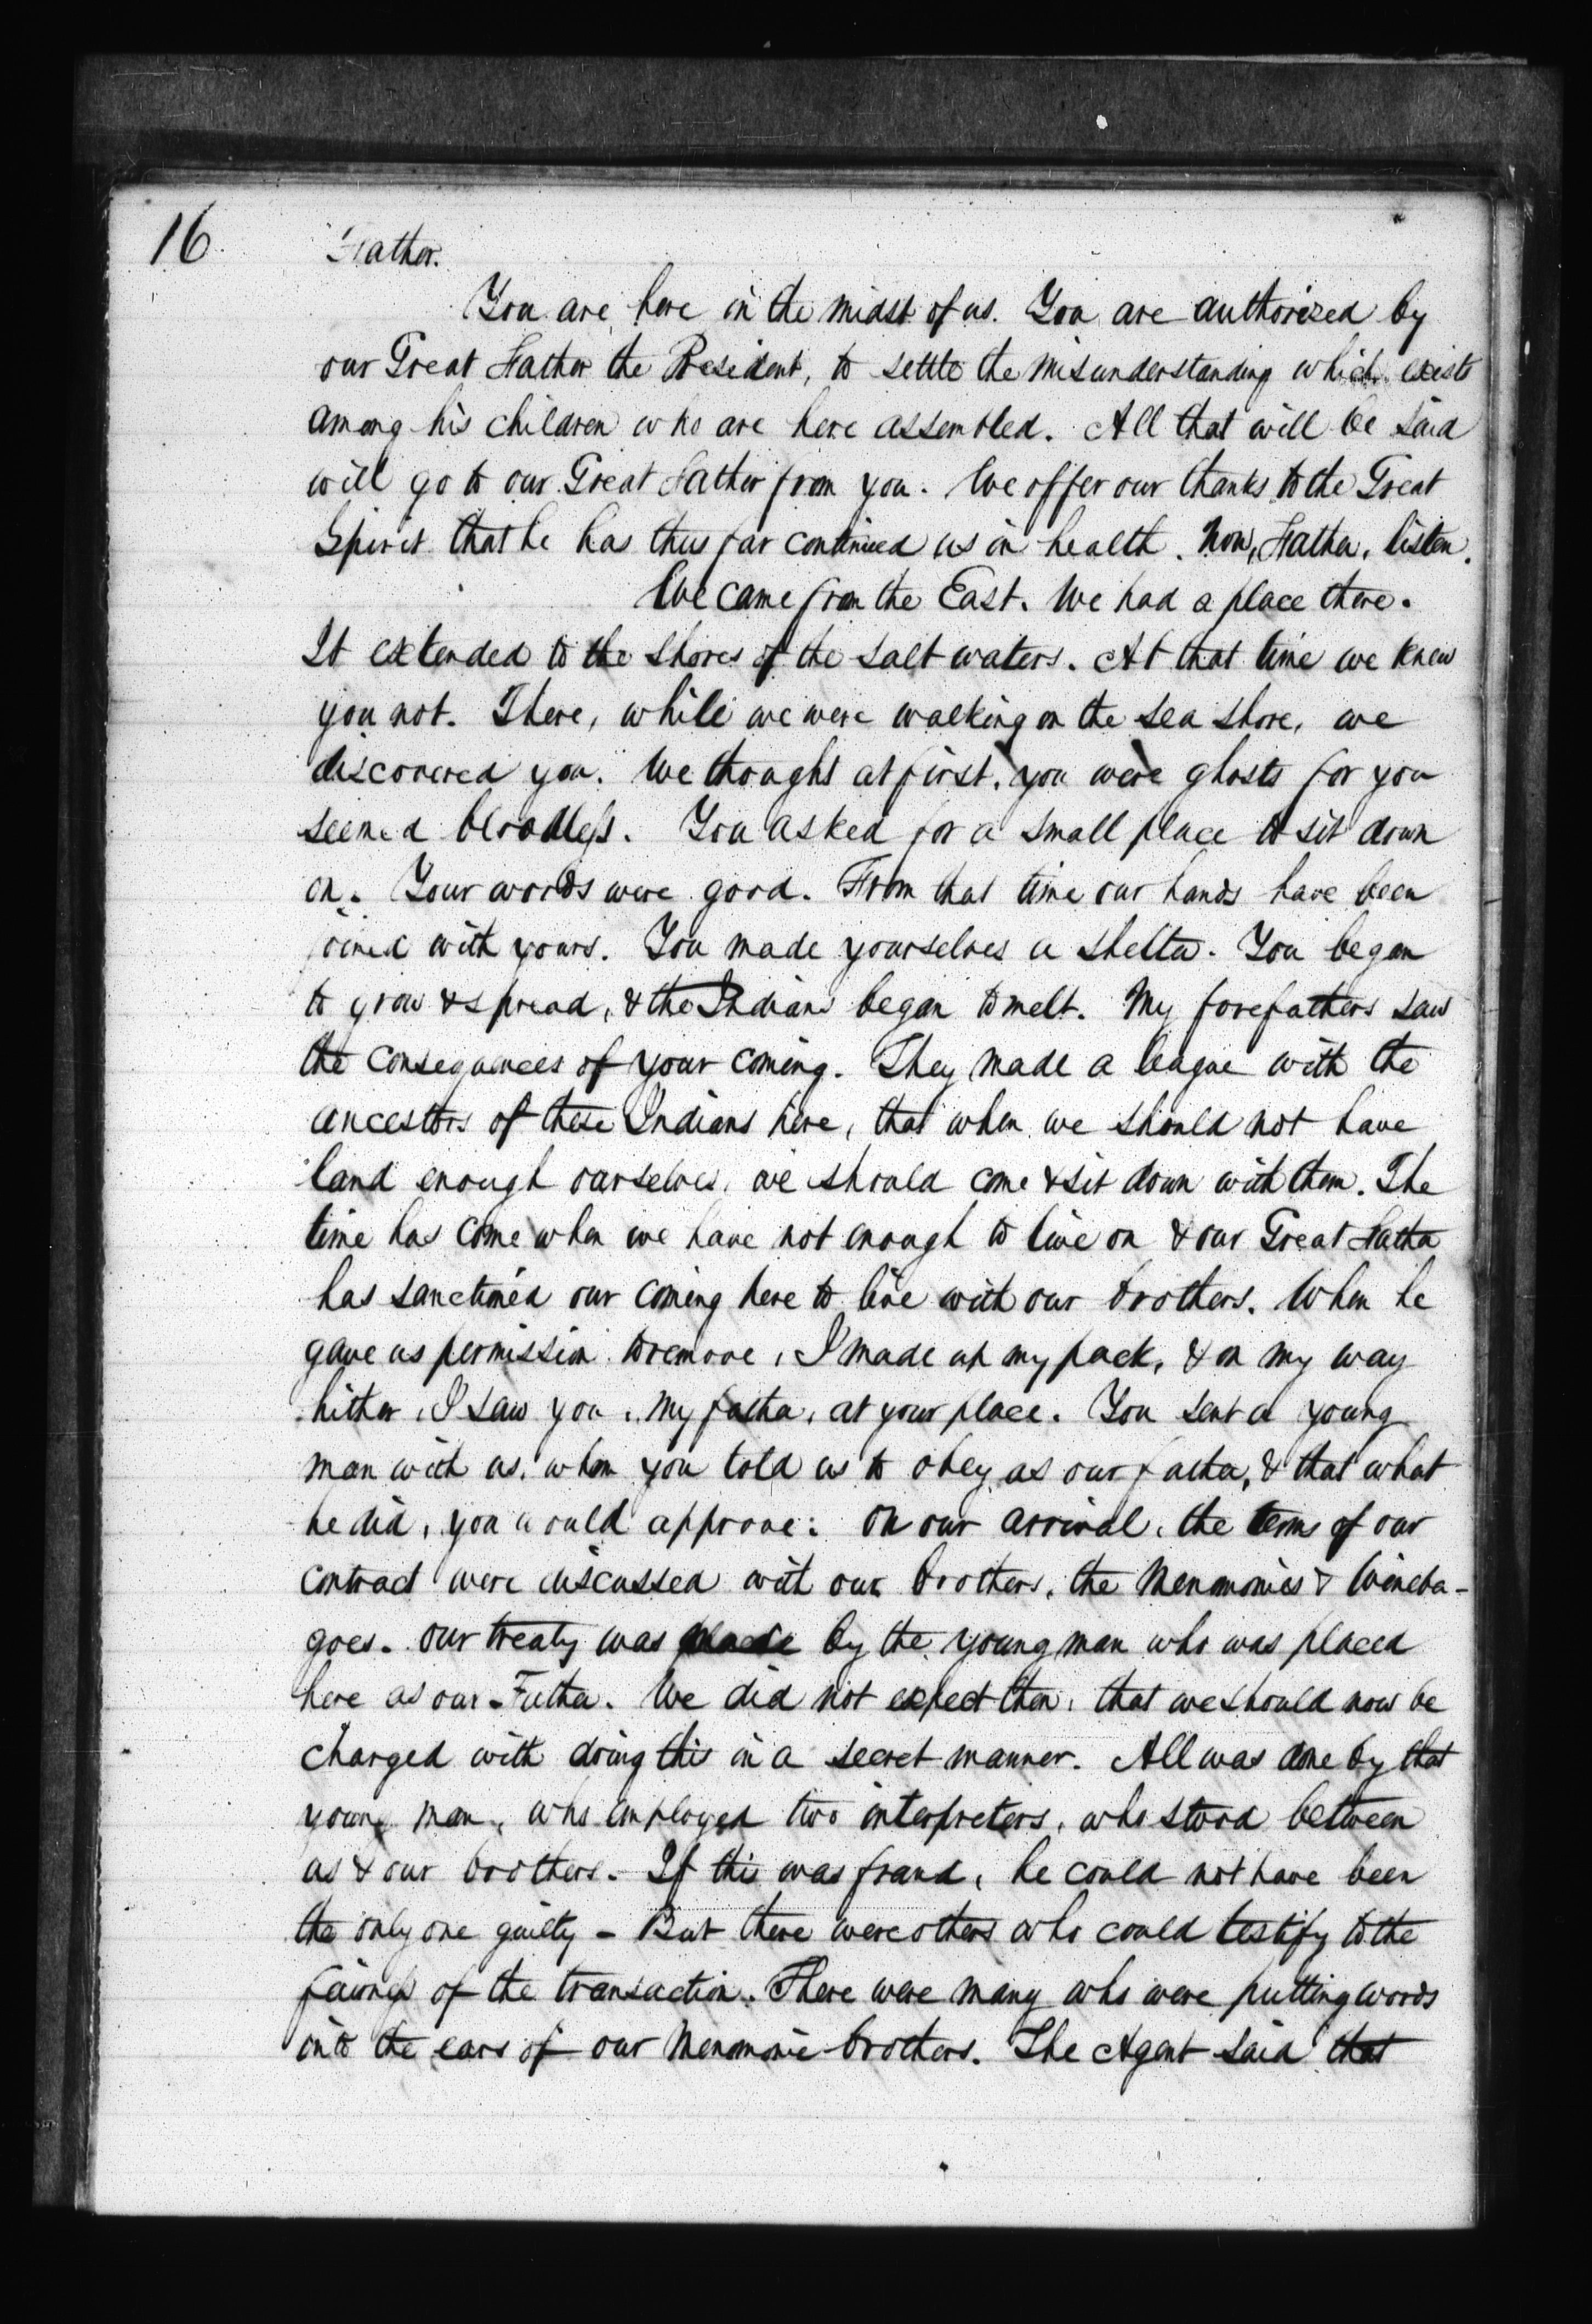 16
Father.
You are here in the midst of us. You are authorized by
our Great Father the President, to settle the misunderstanding which exists
among his children who are here assembled. All that will be said
will go to our Great Father from you. We offer our thanks to the Great
Spirit that he has thus far continued us in health. Now, Father, listen.
We came from the East. We had a place there.
It extended to the shores of the salt waters. At that time we knew
you not. There, while we were walking on the sea shore, we
discovered you. We thought at first, you were ghosts for you
seemed bloodless. You asked for a small place to sit down
on. Your words were good. From that time our hands have been
joined with yours. You made yourselves a shelter. You began
to grow & spread, & the Indians began to melt. My forefathers saw
the consequences of your coming. They made a league with the
ancestors of these Indians here, that when we should not have
land enough ourselves, we should come & sit down with them. The
time has come when we have not enough to live on & our Great Father
has sanctioned our coming here to live with our brothers. When he
gave us permission to remove, I made up my pack, & on my way
hither, I saw you, my father, at your place. You sent a young
man with us, whom you told us to obey as our father, & that what
he did, you would approve: On our arrival, the terms of our
contract were discussed with our brothers, the Menomonies & Wineba-
goes. Our treaty was made by the young man who was placed
here as our Father. We did not expect then, that we should now be
charged with doing this in a secret manner. All was done by that
young man, who employed two interpreters, who stood between
us & our brothers. If this was fraud, he could not have been
the only one guilty - But there were others who could testify to the
fairness of the transaction. There were many who were putting words
into the ears of our Menomonie brothers. The Agent said that